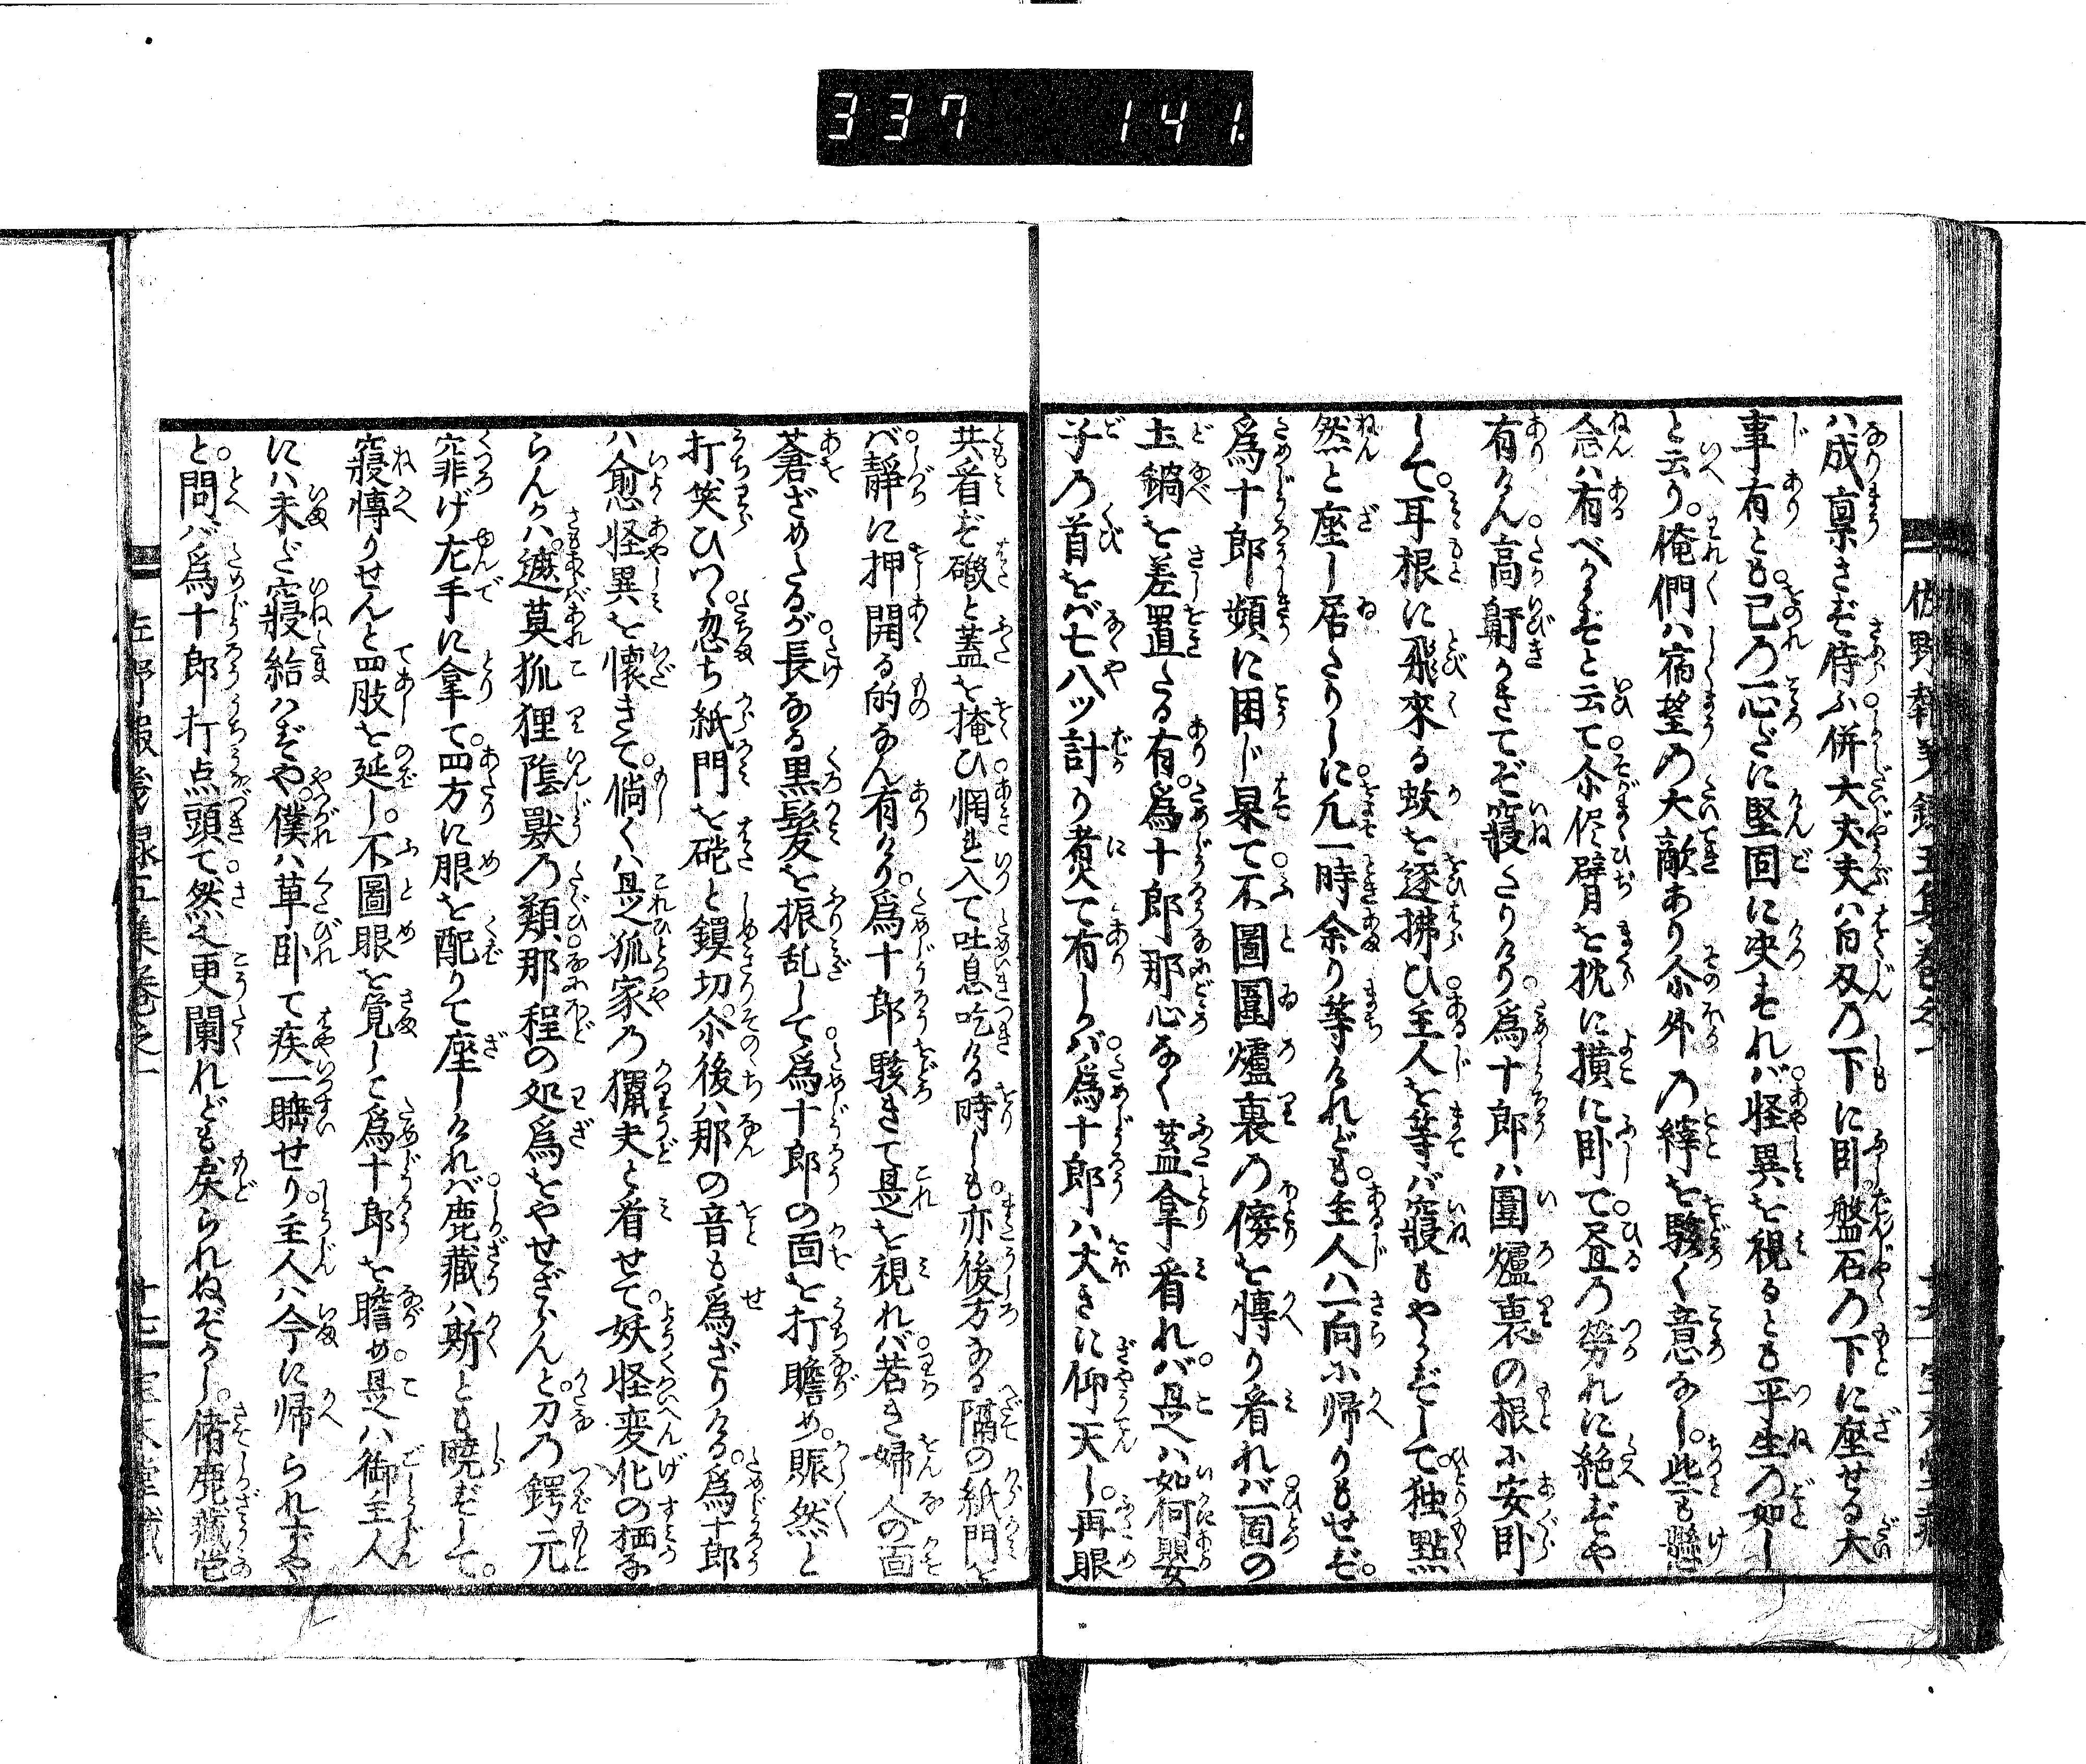 337 141
ハ成稟さぞ侍ふ併大丈夫ハ白刄の下に卧盤石の下に座せる大
事有とも己の一心ざに堅固に决すれバ怪異を視るとも平生の如し
と云り俺們ハ宿望の大敵あり尒外の縡を駭く意なし些も懸
念ハ有べからずと云て尒侭臂を枕に摗に卧て昼の労れに絶ずや
有けん高鼾かきてぞ寝たりけり爲十郎ハ圍爐裏の根に安卧
して耳根に飛來る蚊を逐拂ひ主人を等バ寝もやらずして独點
然と座し居たりしに凡一時余り等けれども主人ハ一向に帰りもせず
爲十郎頻に困じ杲て不圖圍爐裏の傍を慱り看れバ一固の
土鍋を差置たる有爲十郎那心なく蓋拿看れバ是ハ如何嬰
子の首をバ七八ッ計り煑て有しかバ爲十郎ハ大きに仰天し再眼
共看ず礑と蓋を掩ひ惘れ入て吐息吃る時しも亦後方なる隔の紙門を
バ靜に押開る的なん有けり爲十郎駭きて是を視れバ若き婦人の面
蒼ざめたるが長なる黒髪を振乱して爲十郎の面を打瞻め賑然と
打笑ひつゝ忽ち紙門を硴と鎖切尒後ハ那の音も爲ざりける爲十郎
ハ愈怪異を懐きて倘くハ是孤家の獵夫と看せて妖怪変化の栖な
らんかハ遮莫狐狸陰獸の類那程の処爲をやせざらんと刀の鍔元
窕げ左手に拿て四方に眼を配りて座しけれバ鹿藏ハ斯とも曉ずして
寝慱りせんと四肢を延し不圖眼を覚して爲十郎を瞻め是ハ御主人
にハ未ざ寝給ハずや僕ハ草卧て疾一睡せり主人ハ今に帰られずや
と問バ爲十郎打点頭て然也更闌れども戻られぬぞかし偖鹿藏